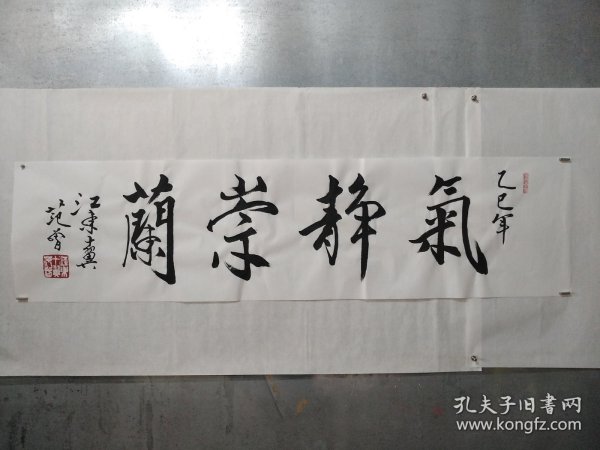 乙巳年
氣静崇蘭
江東十翼
范曾
孔夫子旧书网
www.kongfz.com